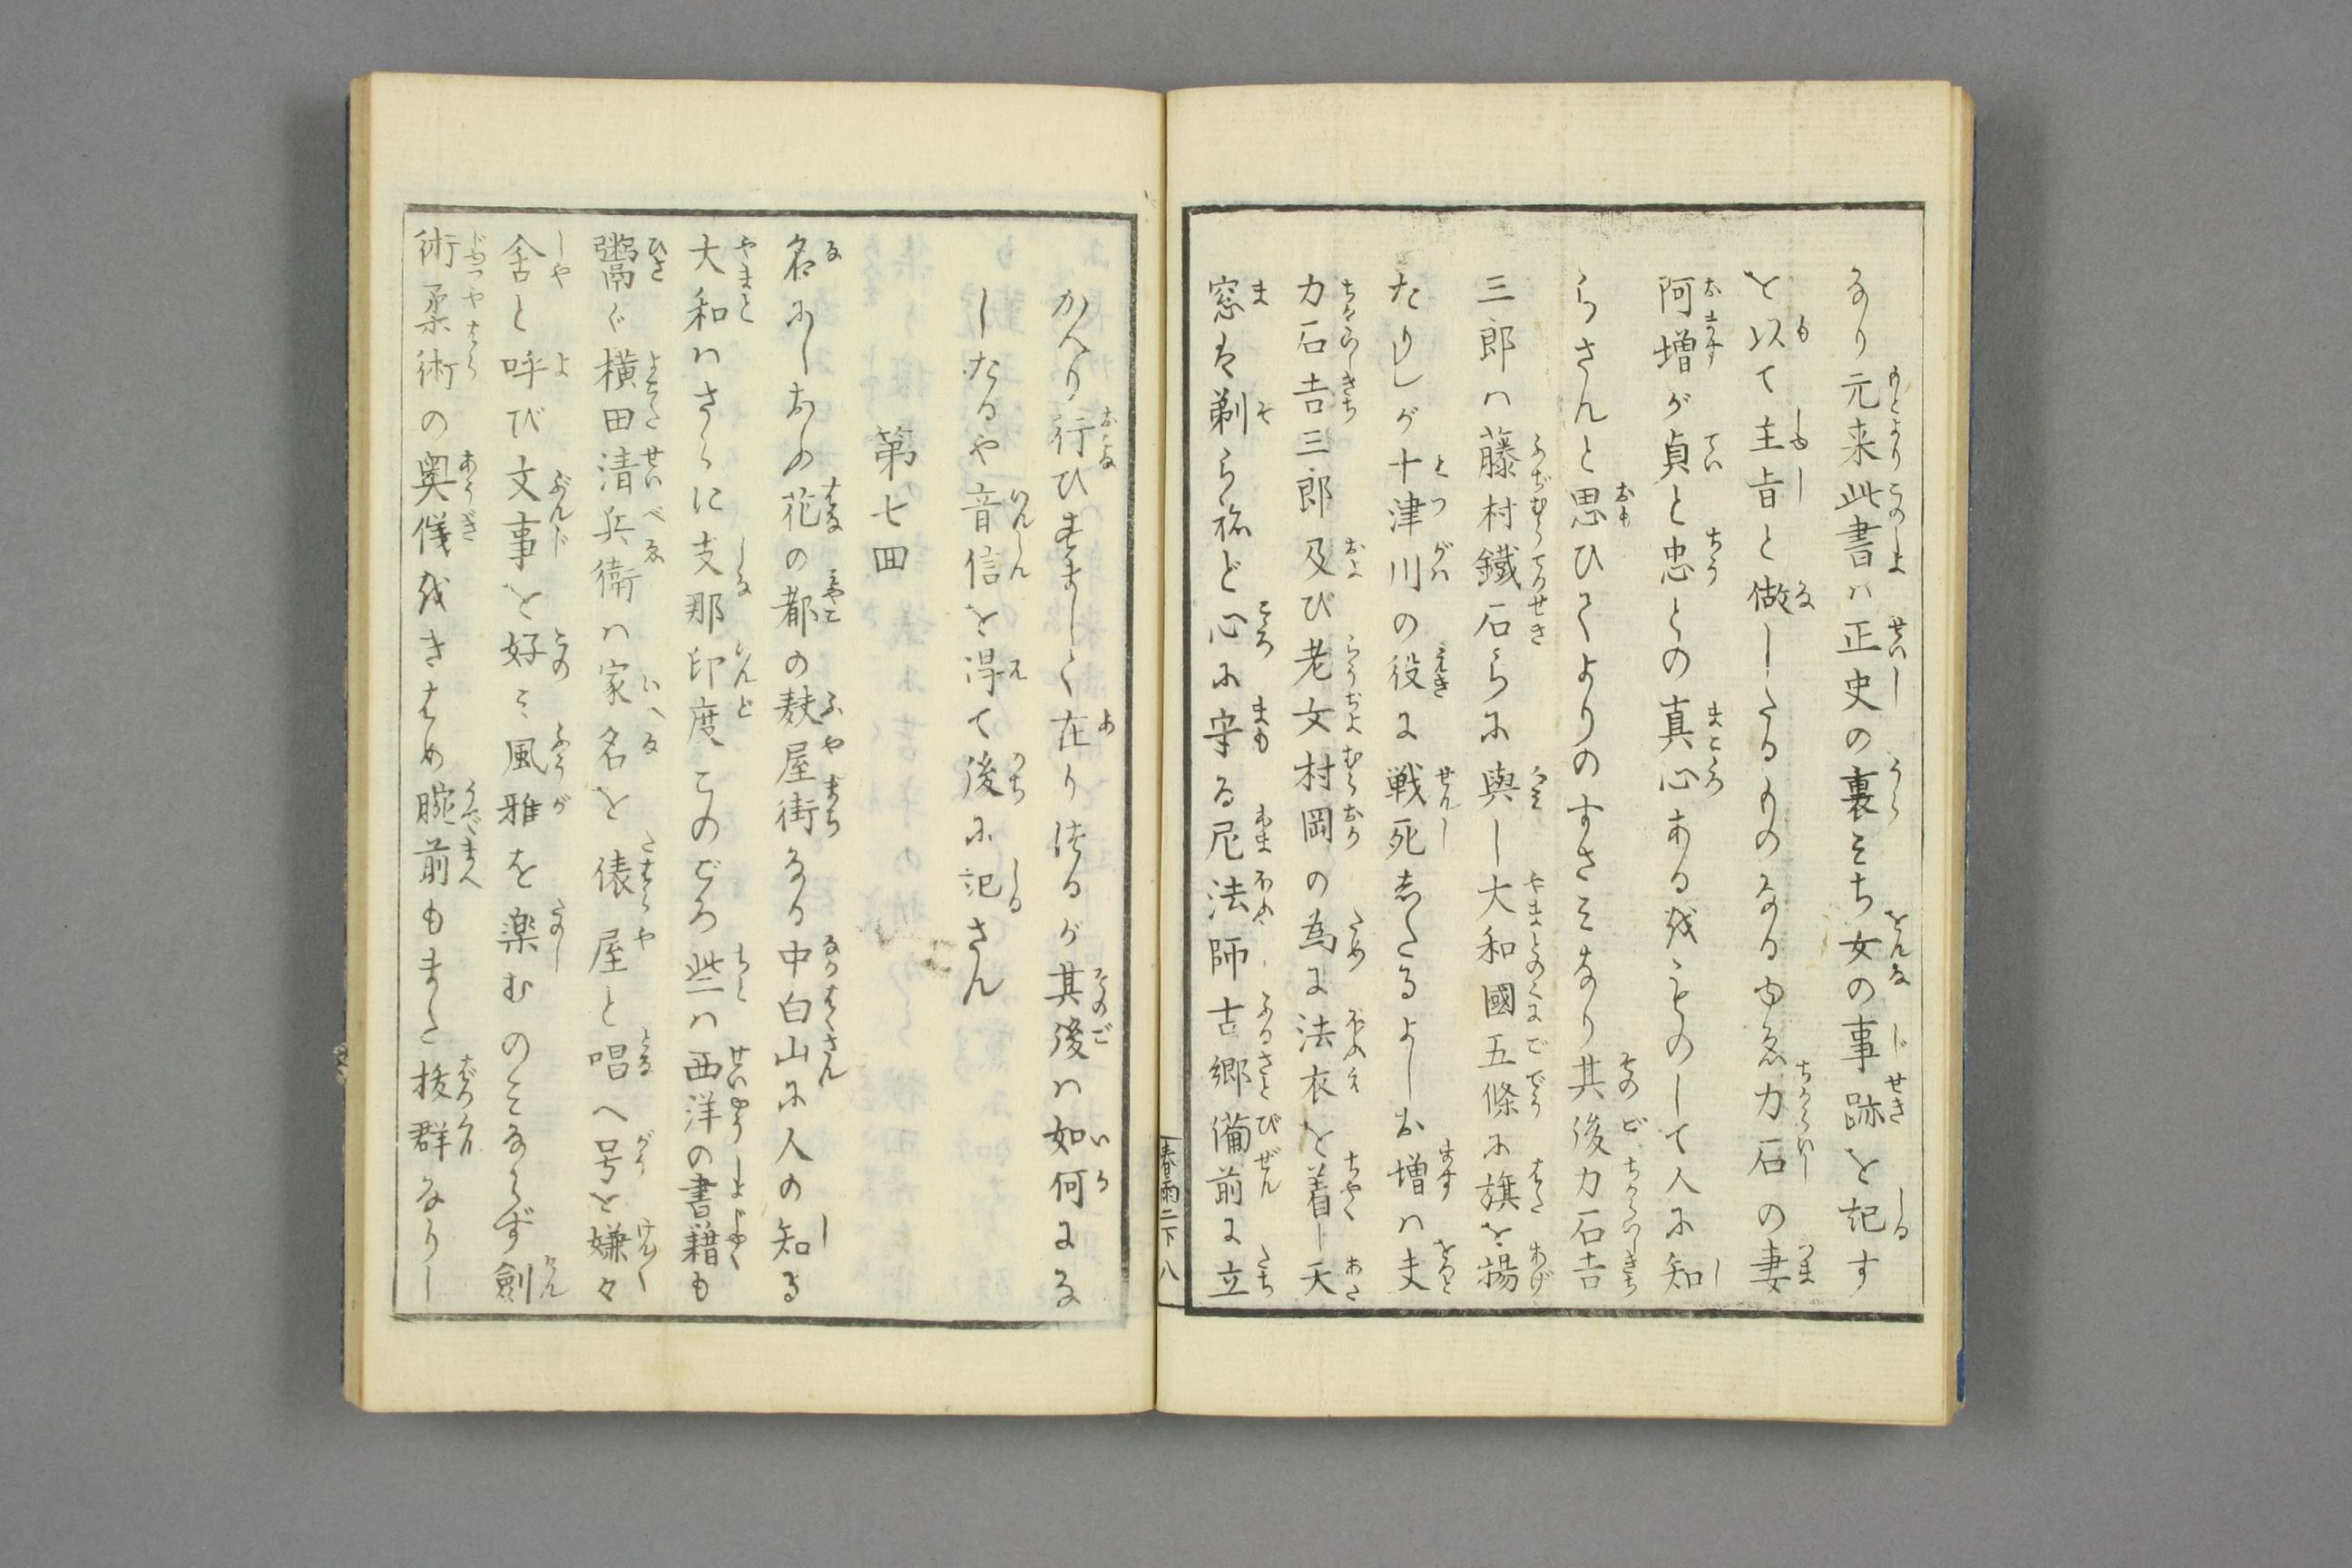 なり元来此書ハ正史の裏ミち女の事跡を記す
を以て主旨と做したるものなるゆゑ力石の妻
阿増が貞と忠との真心ある我ものして人に知
らさんと思ひてよりのすさミなり其後力石吉
三郎ハ藤村鐵石らに與し大和國五條に旗を揚
たりしが十津川の役に戦死したるよしお増ハ夫
力石吉三郎及び老女村岡の為に法衣を着し天
窓は剃らねど心に守る尼法師古郷備前に立
春雨二下 八
かへり行ひすまして在りけるが其後ハ如何にな
しなるや音信を得て後に記さん
第七回
名にしおふ花の都の麸屋街なる中白山に人の知る
大和ハさらに支那印度このごろ些ハ西洋の書籍も
鬻ぐ横田清兵衛ハ家名を俵屋と唱へ号を嫌々
舎と呼び文事を好ミ風雅を楽むのミならず劍
術柔術の奥儀我きはめ腕前もまた抜群なりし